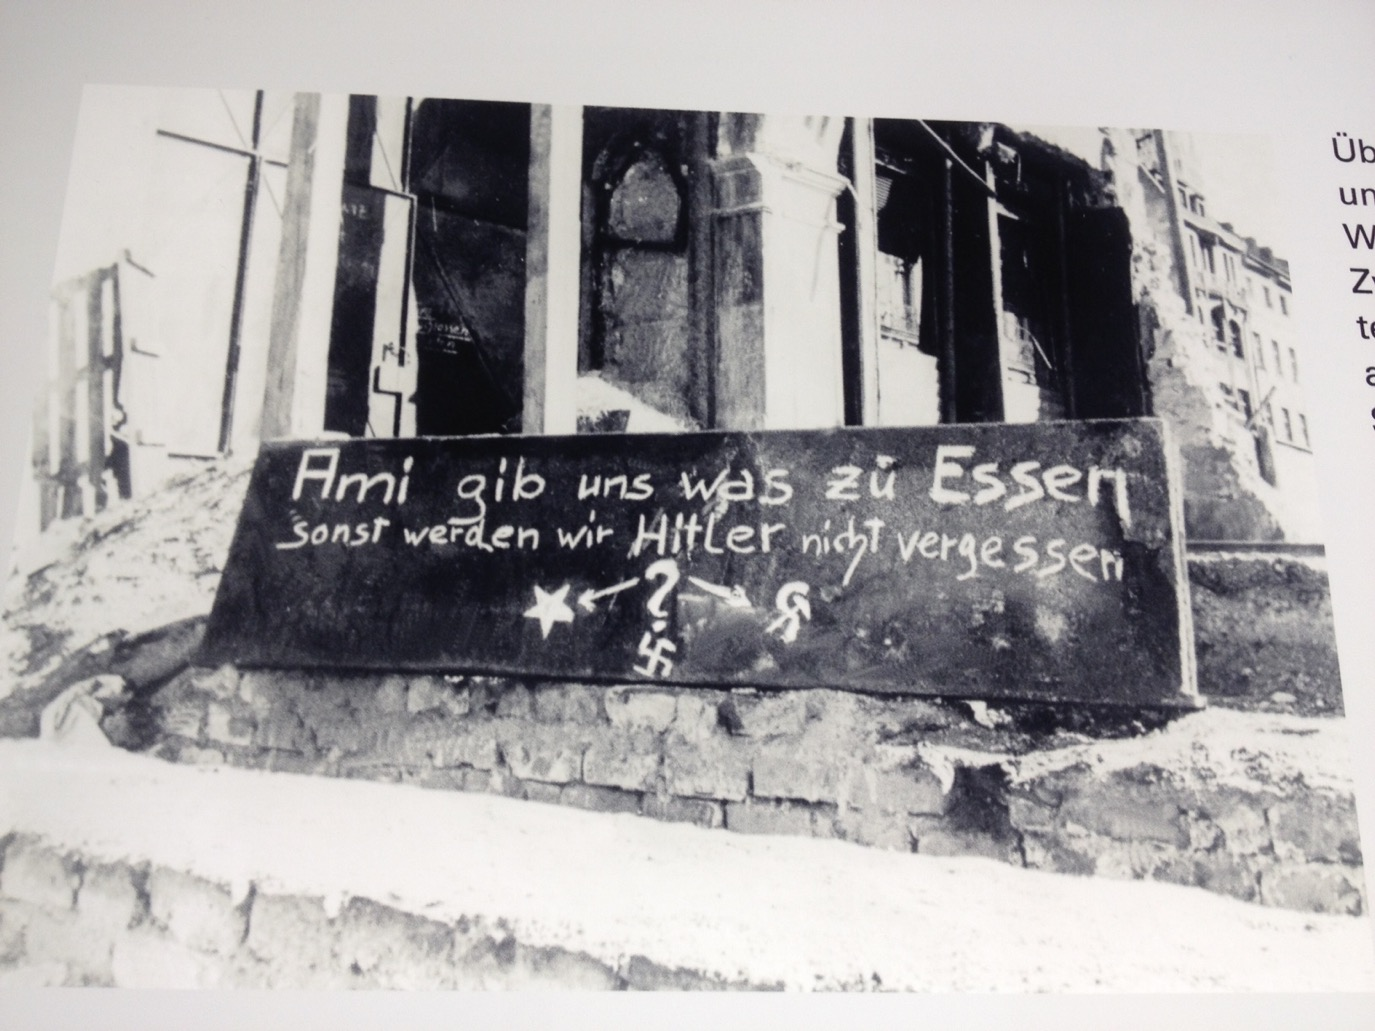 Ami gib uns was zü Essen
sonst werden wir Hitler nicht vergessen
?
Üb
un
W
Zw
te
a